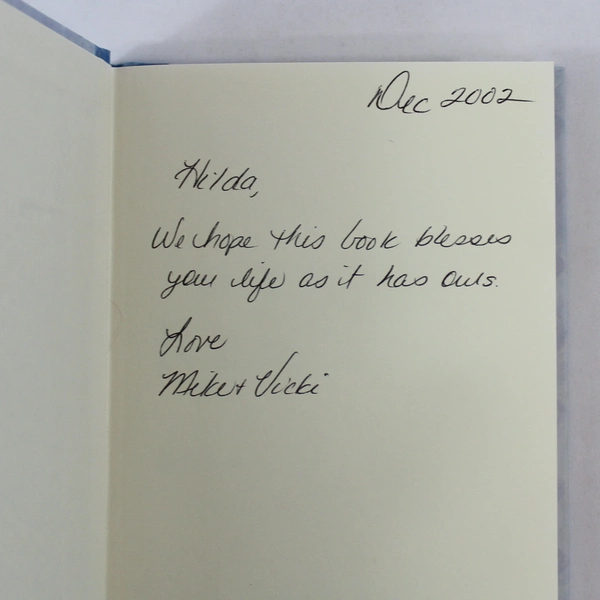 Dec 2002
Hilda,
We hope this book blesses
your life as it has ours.
Love
Mike + Vicki